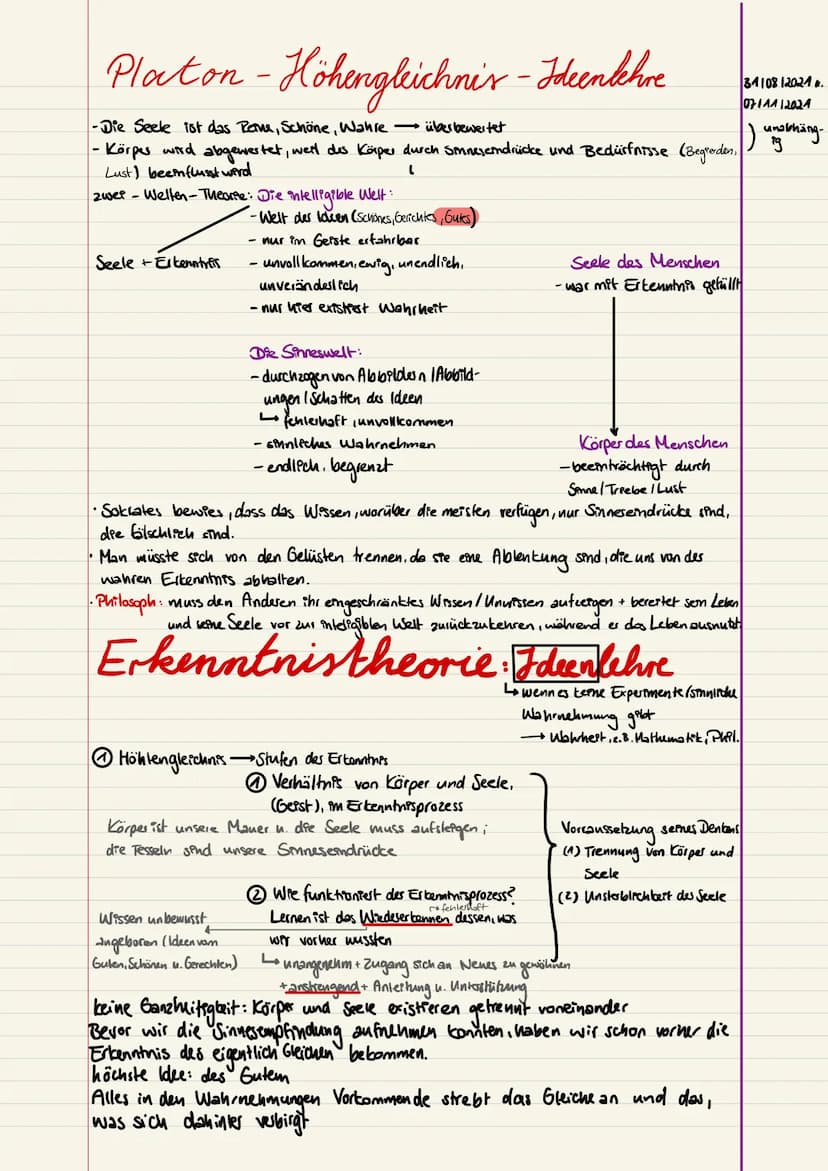 Platon - Höhengleichnis - Ideenlehre
31/08/2021 u.
07/11/2021
- Die Seele ist das Reine, Schöne, Wahre → überbewertet
) unabhäng-
ig
- Körper wird abgewertet, weil das Körper durch Sinneseindrücke und Bedürfnisse (Begierden,
Lust) beeinflusst wird
zwei - Welten - Theorie: Die intelligible Welt:
- Welt der Ideen (Schönes, Gerechtes, Gutes)
- nur im Geiste erfahrbar
Seele + Erkenntnis
- unvollkommen, ewig, unendlich,
unveränderlich
- nur hier existiert Wahrheit
Seele des Menschen
- war mit Erkenntnis gefüllt
Die Sinneswelt:
- durchzogen von Abbildern / Abbild-
ungen / Schatten des Ideen
↳ fehlerhaft, unvollkommen
- sinnliches Wahrnehmen
- endlich, begrenzt
Körper des Menschen
- beeinträchtigt durch
Sinne / Triebe / Lust
· Sokrates bewies, dass das Wissen, worüber die meisten verfügen, nur Sinneseindrücke sind,
die fälschlich sind.
· Man müsste sich von den Gelüsten trennen, da sie eine Ablenkung sind, die uns von der
wahren Erkenntnis abhalten.
· Philosoph: muss den Anderen ihr eingeschränktes Wissen / Unwissen aufzeigen + bereitet sein Leben
und seine Seele vor zur intelligiblen Welt zurückzukehren, während er das Leben ausnutzt
Erkenntnistheorie: Ideenlehre
↳ wenn es keine Experimente / sinnliche
Wahrnehmung gibt
→ Wahrheit, z.B. Mathematik, Phil.
① Höhlengleichnis → Stufen der Erkenntnis
① Verhältnis von Körper und Seele,
(Geist), im Erkenntnisprozess
Körper ist unsere Mauer u. die Seele muss aufsteigen;
die Fesseln sind unsere Sinneseindrücke
Vorraussetzung seines Denkens
(1) Trennung von Körper und
Seele
(2) Unsterblichkeit der Seele
② Wie funktioniert der Erkenntnisprozess?
→ fehlerhaft
Lernen ist das Wiedererkennen dessen, was
wir vorher wussten
Wissen unbewusst
angeboren (Ideen vom
Guten, Schönen u. Gerechten)
↳ unangenehm + Zugang sich an Neues zu gewöhnen
+ anstrengend + Anleitung u. Unterstützung
keine Ganzheitigkeit: Körper und Seele existieren getrennt voneinander
Bevor wir die Sinnesempfindung aufnehmen konnten, haben wir schon vorher die
Erkenntnis des eigentlich Gleichen bekommen.
höchste Idee: des Gutem
Alles in den Wahrnehmungen Vorkommende strebt das Gleiche an und das,
was sich dahinter verbirgt